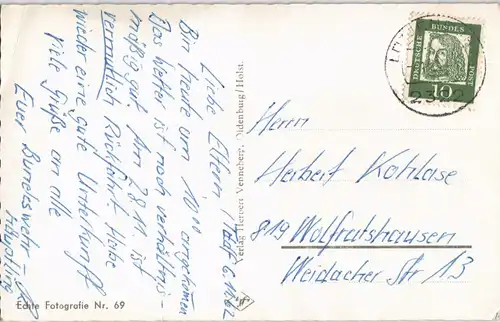 Liebe Eltern!
Bin heute um 10⁰⁰ angekommen
Das Wetter ist noch verhältnis-
mäßig gut. Am 28.11. ist
vermutlich Rückfahrt. Habe
wieder eine gute Unterkunft
viele Grüße an alle
Euer Bundeswehr
Verlag Herbert Venneberg, Oldenburg/Holst.
DEUTSCHE BUNDESPOST
10
Herrn
Herbert Kohlase
819 Wolfratshausen
Weidacher Str 13
Echte Fotografie Nr. 69